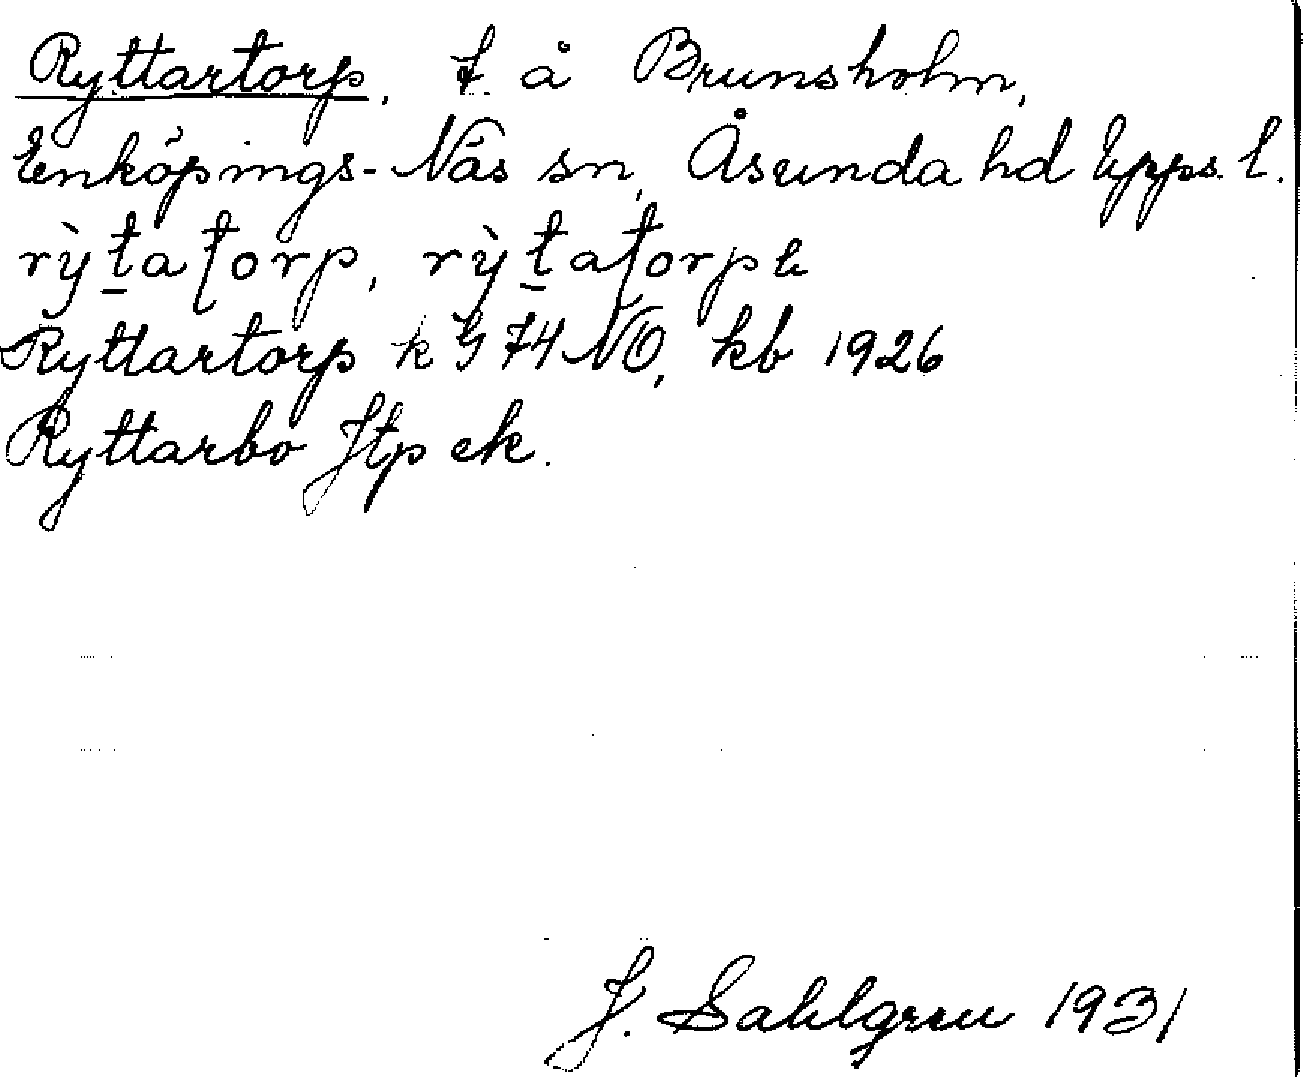 Ryttartorp, t. å Brunsholm,
Enköpings-Näs sn, Åsunda hd Upps. l.
rỳt̠aʈorp, rỳt̠aʈorp
Ryttartorp k G 74 NO, kb 1926
Ryttarbo Jtp ek.
J. Sahlgren 1931